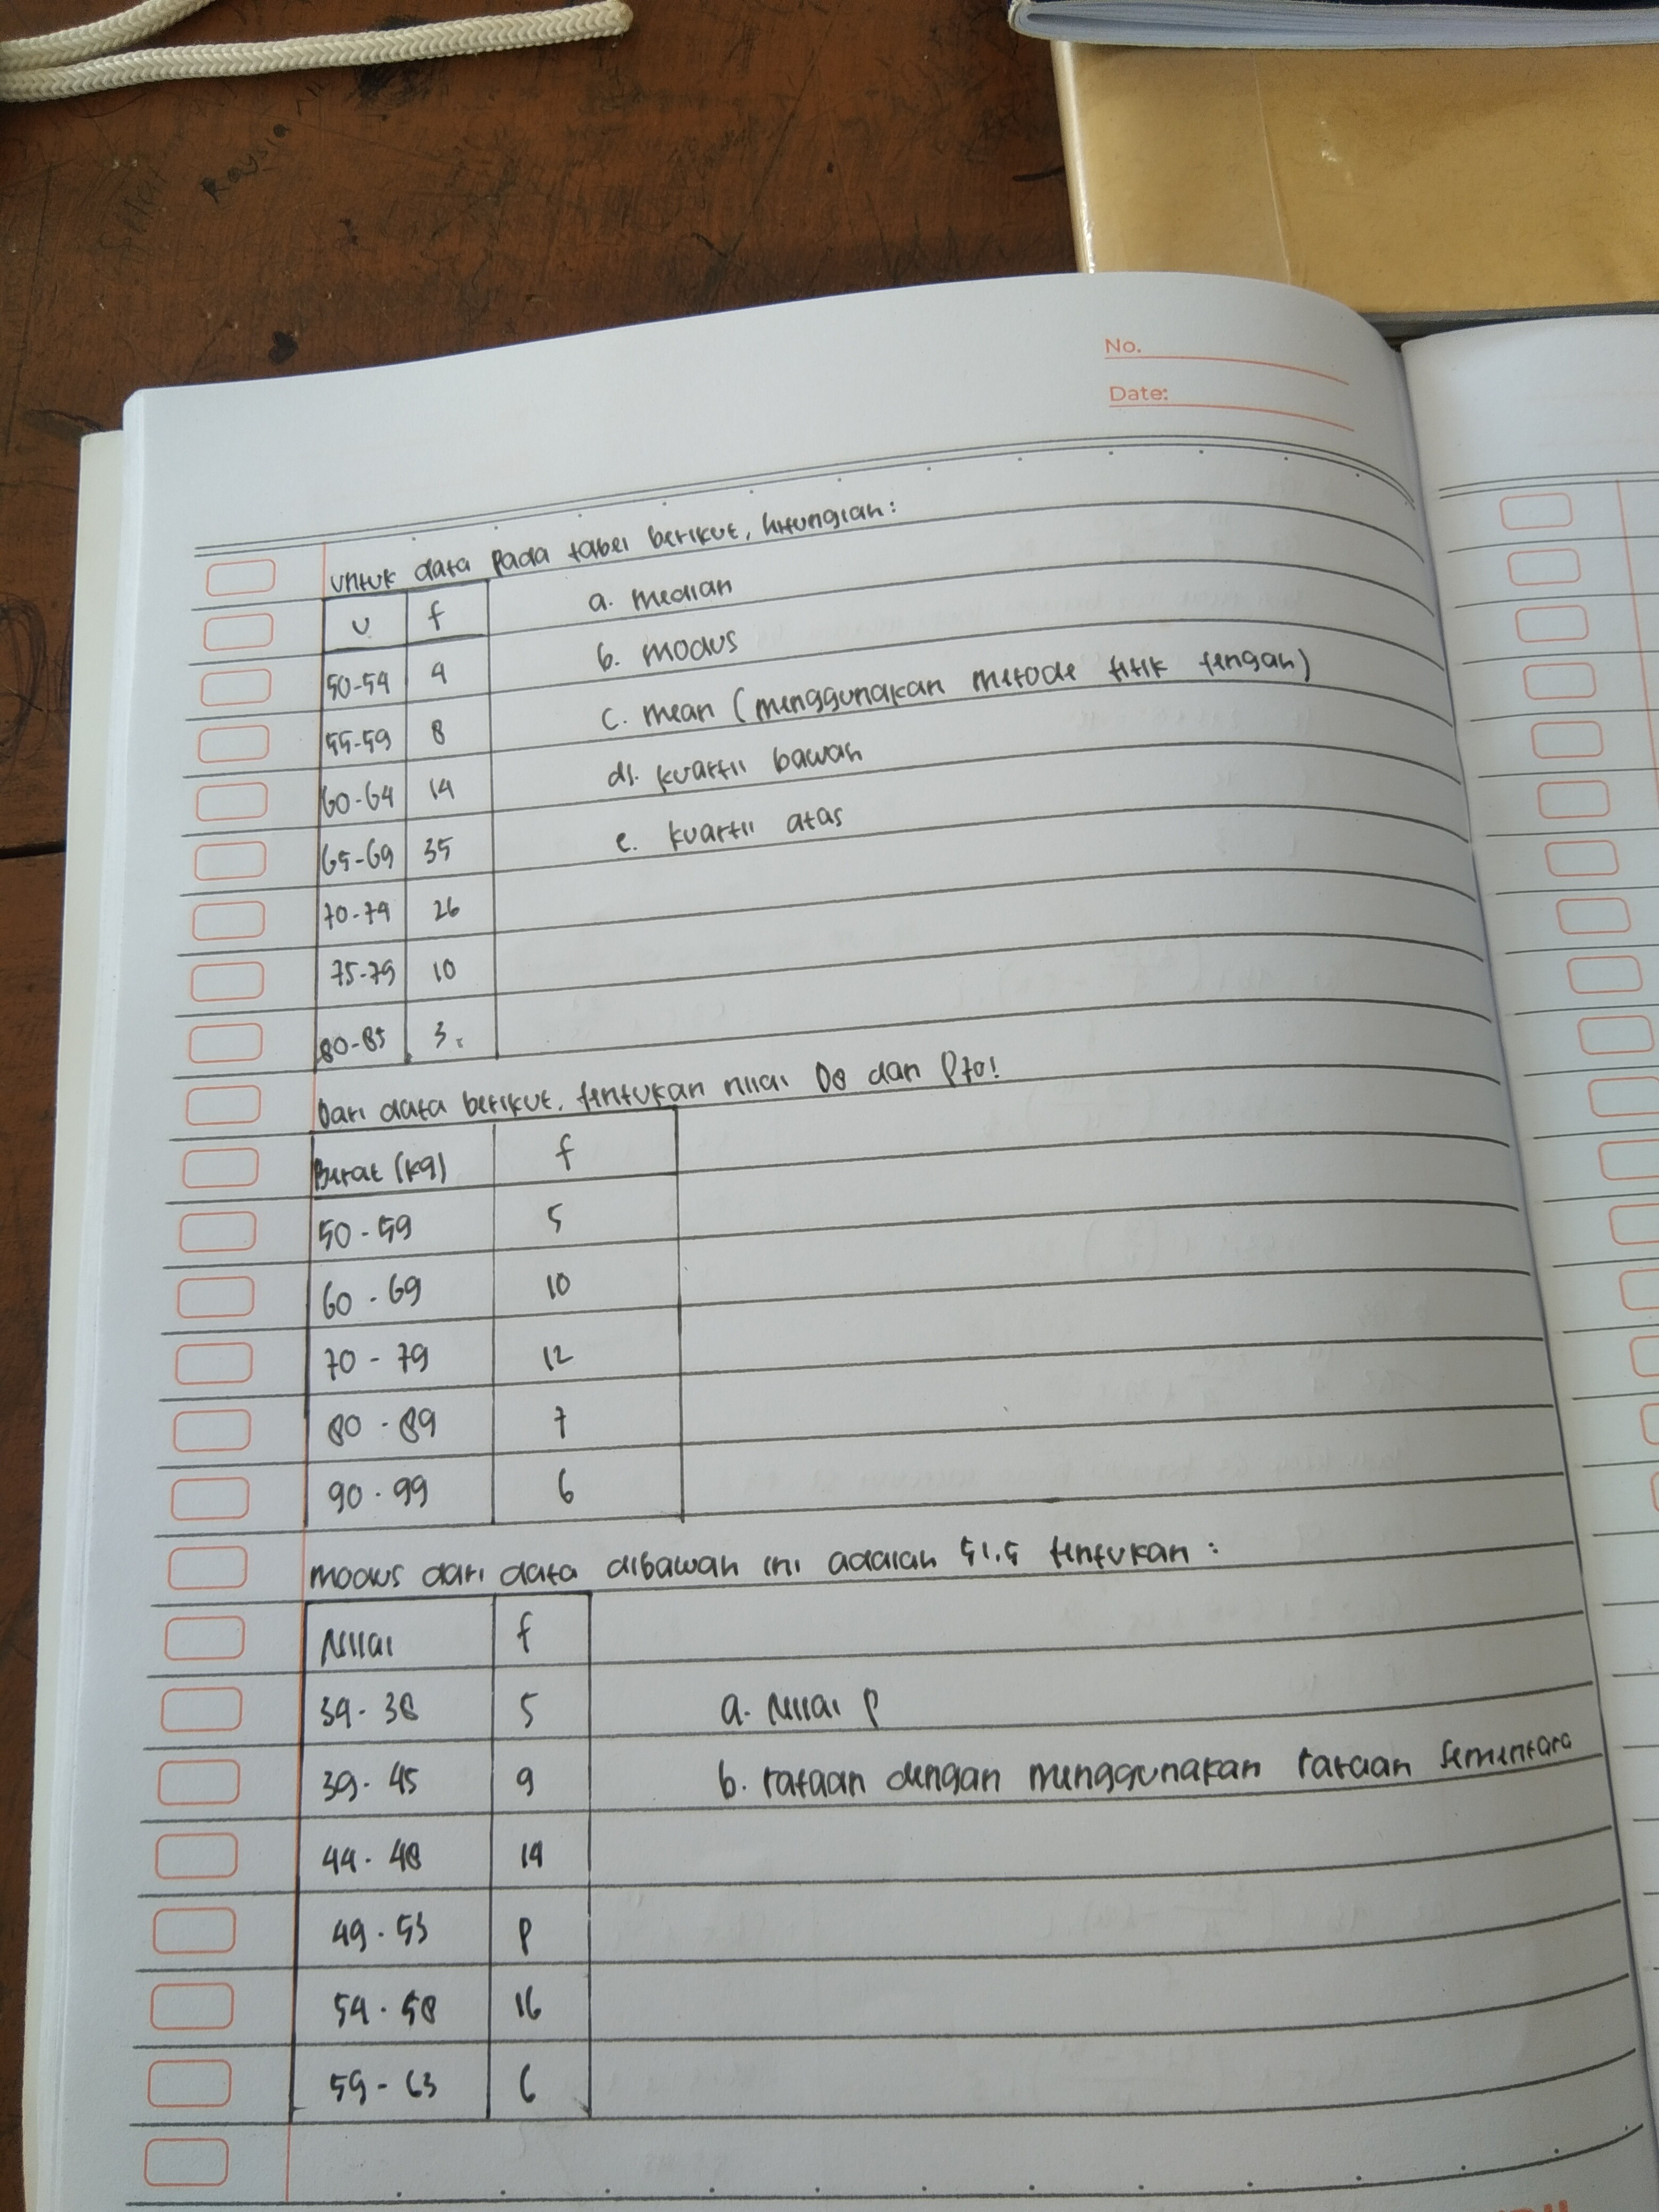 No.
Date:
untuk data pada tabel berikut, hitunglah:
U f a. median
50-54 4 b. modus
55-59 8 c. mean (menggunakan metode titik tengah)
60-64 14 d. kuartil bawah
65-69 35 e. kuartil atas
70-74 26
75-79 10
80-85 3
Dari data berikut, tentukan nilai D8 dan P70!
Berat (kg) f
50-59 5
60-69 10
70-79 12
80-89 7
90-99 6
modus dari data dibawah ini adalah 51,5 tentukan:
Nilai f
34-38 5 a. Nilai P
39-45 9 b. rataan dengan menggunakan rataan sementara
44-48 14
49-53 P
54-58 16
59-63 6